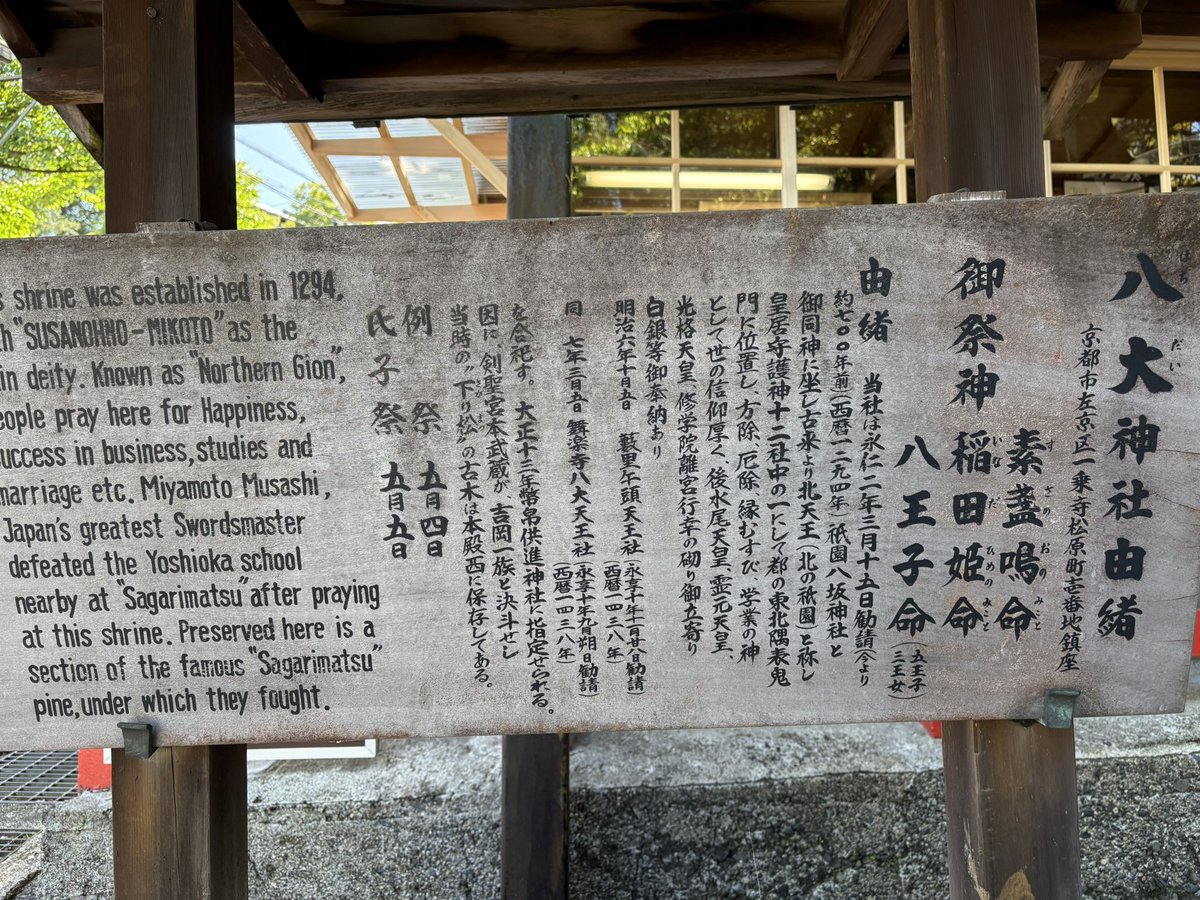 八大神社由緒
はち
だい
京都市左京区一乗寺松原町壱番地鎮座
御祭神
素盞嗚命
すさのおのみこと
稲田姫命
いなだひめのみこと
八王子命
(五王子
三王女)
由緒
当社は永仁二年三月十五日勧請(今より
約七〇〇年前)(西暦一二九四年)祇園八坂神社と
御同神に坐し古来より北天王(北の祇園)と称し
皇居守護神十二社中の一にして都の東北隅表鬼
門に位置し、方除、厄除、縁むすび、学業の神
として世の信仰厚く、後水尾天皇、霊元天皇、
光格天皇、修学院離宮行幸の砌り御立寄り
白銀等御奉納あり
明治六年十月五日 藪里午頭天王社
(永享十年十一月廿八日勧請
西暦一四三八年)
同 七年三月五日 舞楽寺八大天王社
(永享十年九月朔日勧請
西暦一四三八年)
を合祀す。大正十三年幣帛供進神社に指定せられる。
因に、剣聖宮本武蔵が、吉岡一族と決斗せし
当時の〝下り松〟の古木は本殿西に保存してある。
例祭 五月四日
氏子祭 五月五日
s shrine was established in 1294,
th "SUSANOHNO-MIKOTO" as the
in deity. Known as "Northern Gion",
eople pray here for Happiness,
uccess in business, studies and
marriage etc. Miyamoto Musashi,
Japan's greatest Swordsmaster
defeated the Yoshioka school
nearby at "Sagarimatsu" after praying
at this shrine. Preserved here is a
section of the famous "Sagarimatsu"
pine, under which they fought.